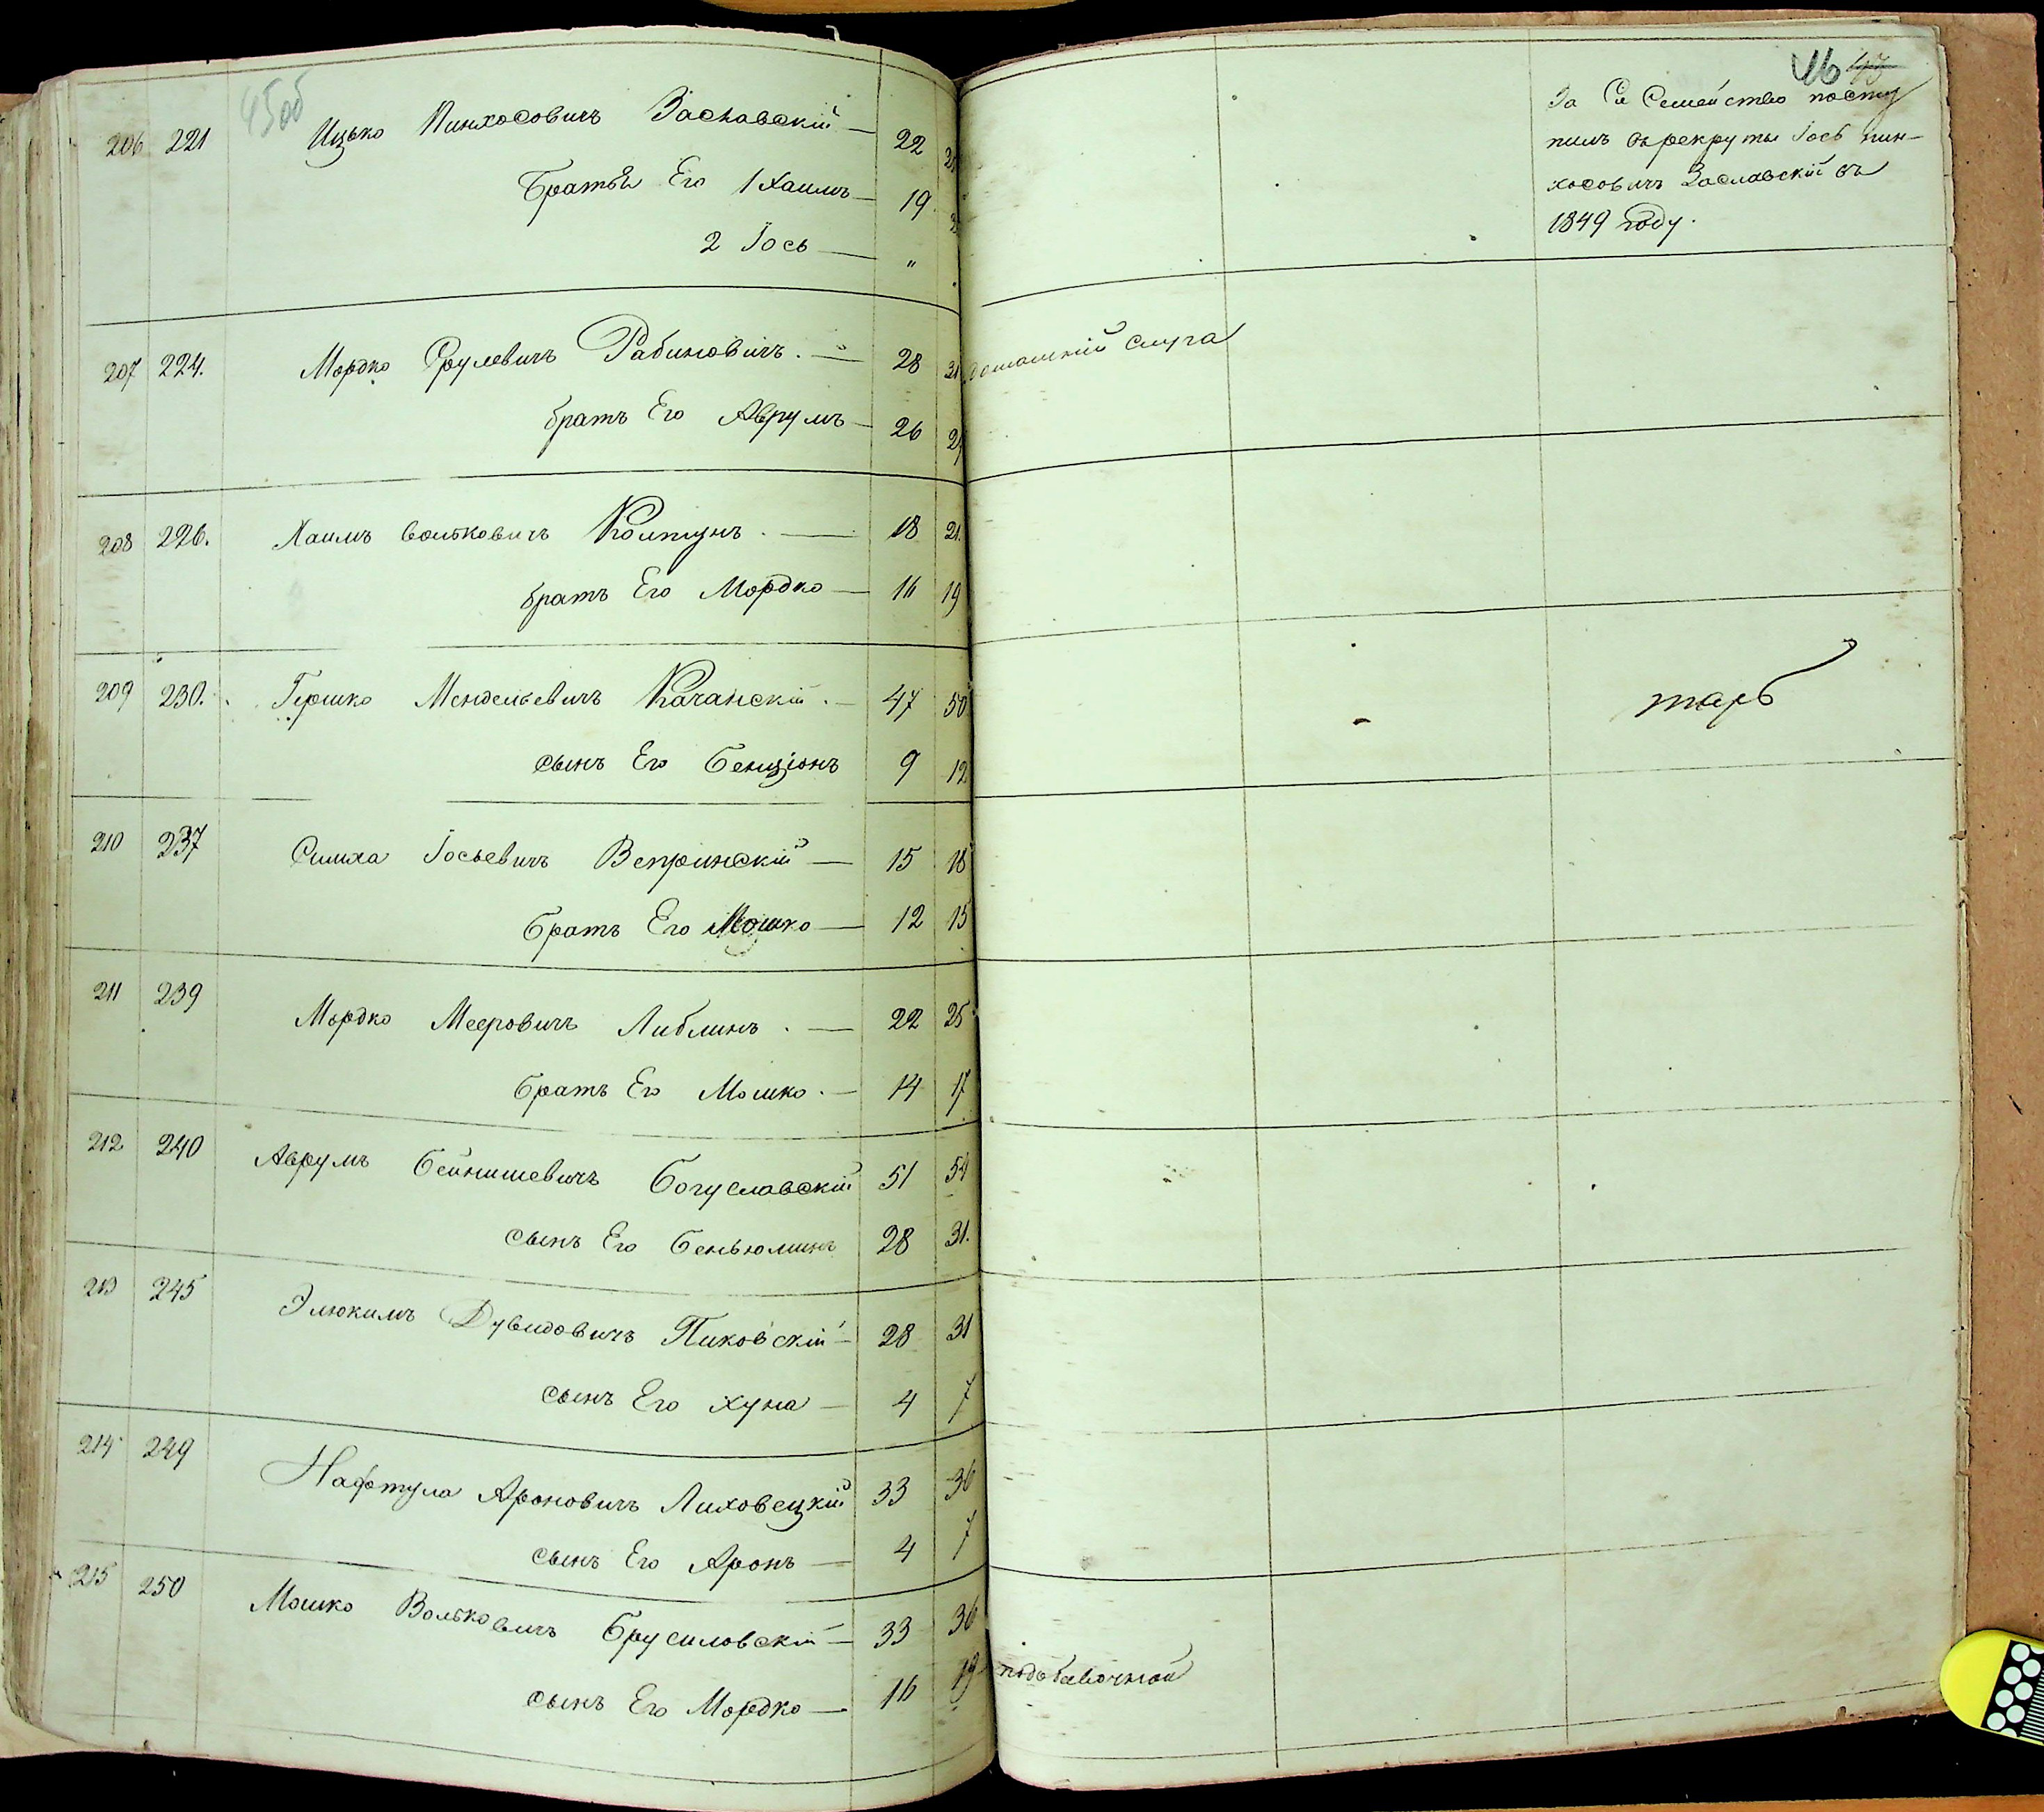 45об
206 221 Ицько Пинхосовичъ Заславскій — 22
Братья Его 1 Хаимъ — 19
2 Іось — "
207 224. Мордко Срулевичъ Рабиновичъ. — 28 31
братъ Его Аврумъ — 26 29
208 226. Хаимъ Вольковичъ Колтунъ. — 18 21.
братъ Его Мордко — 16 19
209 230. Гершко Мендельевичъ Качанскій. — 47 50
сынъ Его Бенціонъ 9 12
210 237 Симха Іосьевичъ Вепринскій — 15 18
братъ Его Мошко — 12 15
211 239 Мордко Мееровичъ Либлинъ. — 22 25
братъ Его Мошко. — 14 17
212 240 Аврумъ Бейнишевичъ Богуславскій 51 54
сынъ Его Беньюминъ 28 31.
213 245 Элюкимъ Дувидовичъ Пиковскій — 28 31
сынъ Его Хуна — 4 7
214 249 Нафтула Ароновичъ Лиховецкій 33 36
сынъ Его Аронъ — 4 7
215 250 Мошко Вольковичъ Брусиловскій — 33 36
сынъ Его Мордко — 16 19
46
За Сіе Семейство посту
пилъ въ рекруты Іось Пин-
хосовичъ Заславскій въ
1849 году.
домашній слуга